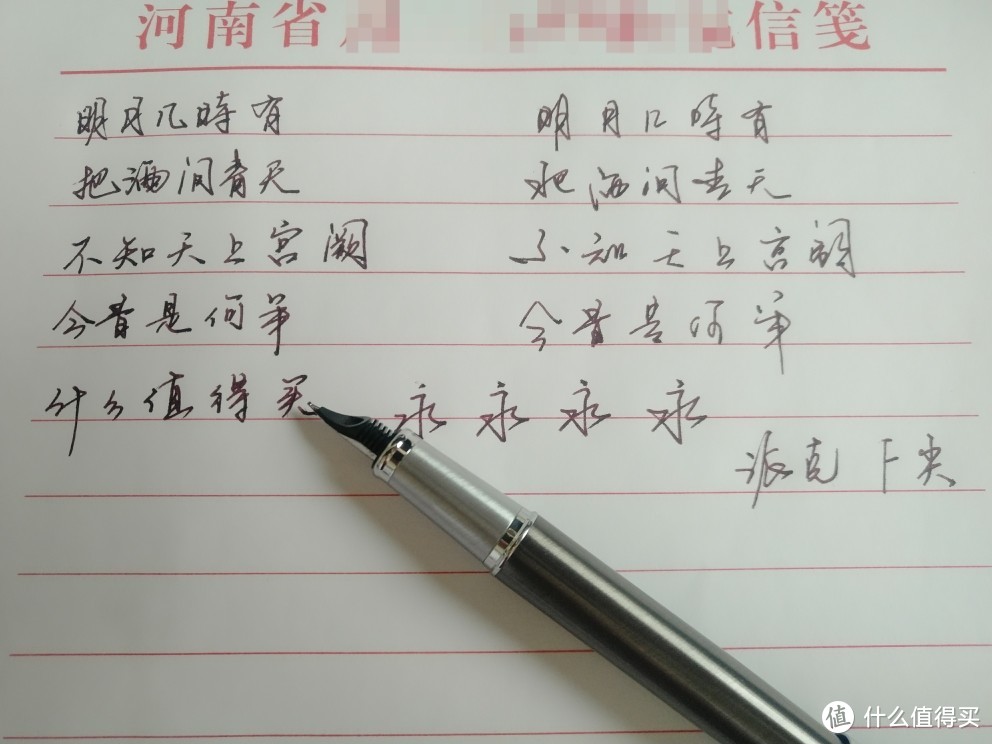 河南省 信笺
明月几時有 明月几時有
把酒问青天 把酒问青天
不知天上宫阙 不知天上宫阙
今昔是何年 今昔是何年
什么值得买 永永永永
派克 F尖
值 什么值得买